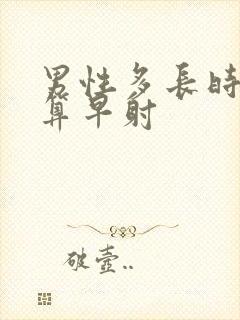 男性多長時
算早射
破壺..